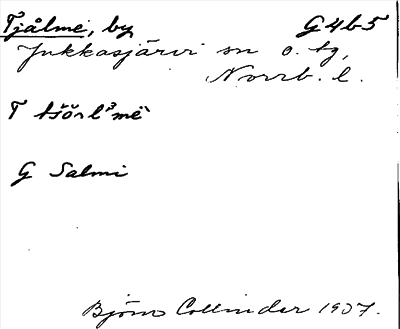 Tjålme, by G4b5
Jukkasjärvi sn o. tg,
Norrb. l.
T
G Salmi
Björn Collinder 1937.